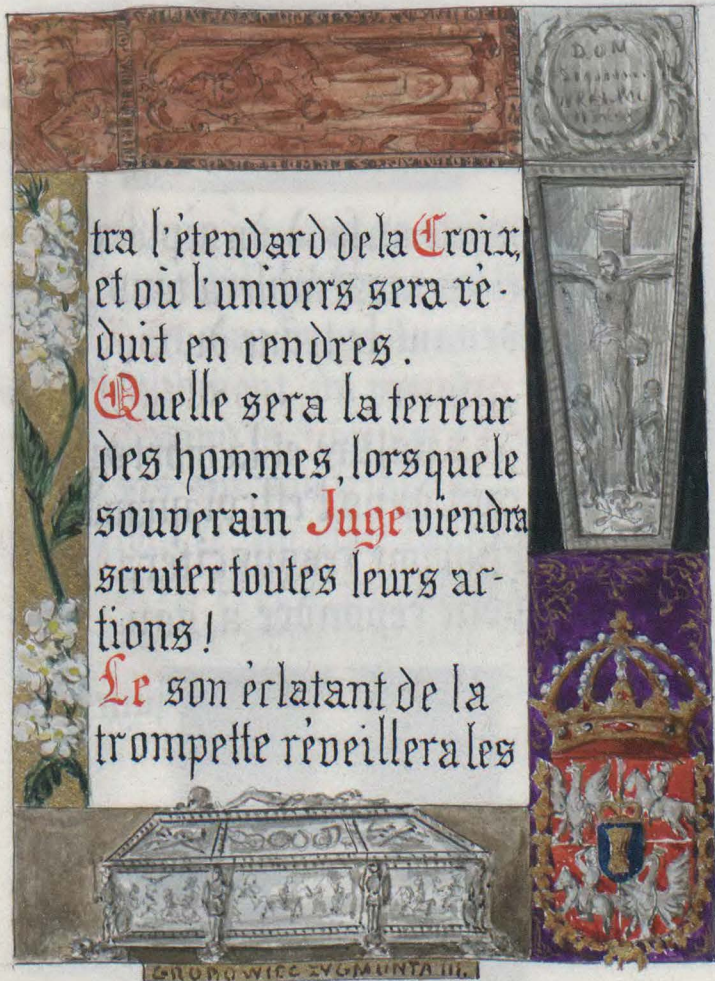 D.O.M
tra l'étendard de la Croix,
et où l'univers sera ré-
duit en cendres.
Quelle sera la terreur
des hommes, lorsque le
souverain Juge viendra
scruter toutes leurs ac-
tions!
Le son éclatant de la
trompette réveillera les
GROBOWIEC ZYGMUNTA III.